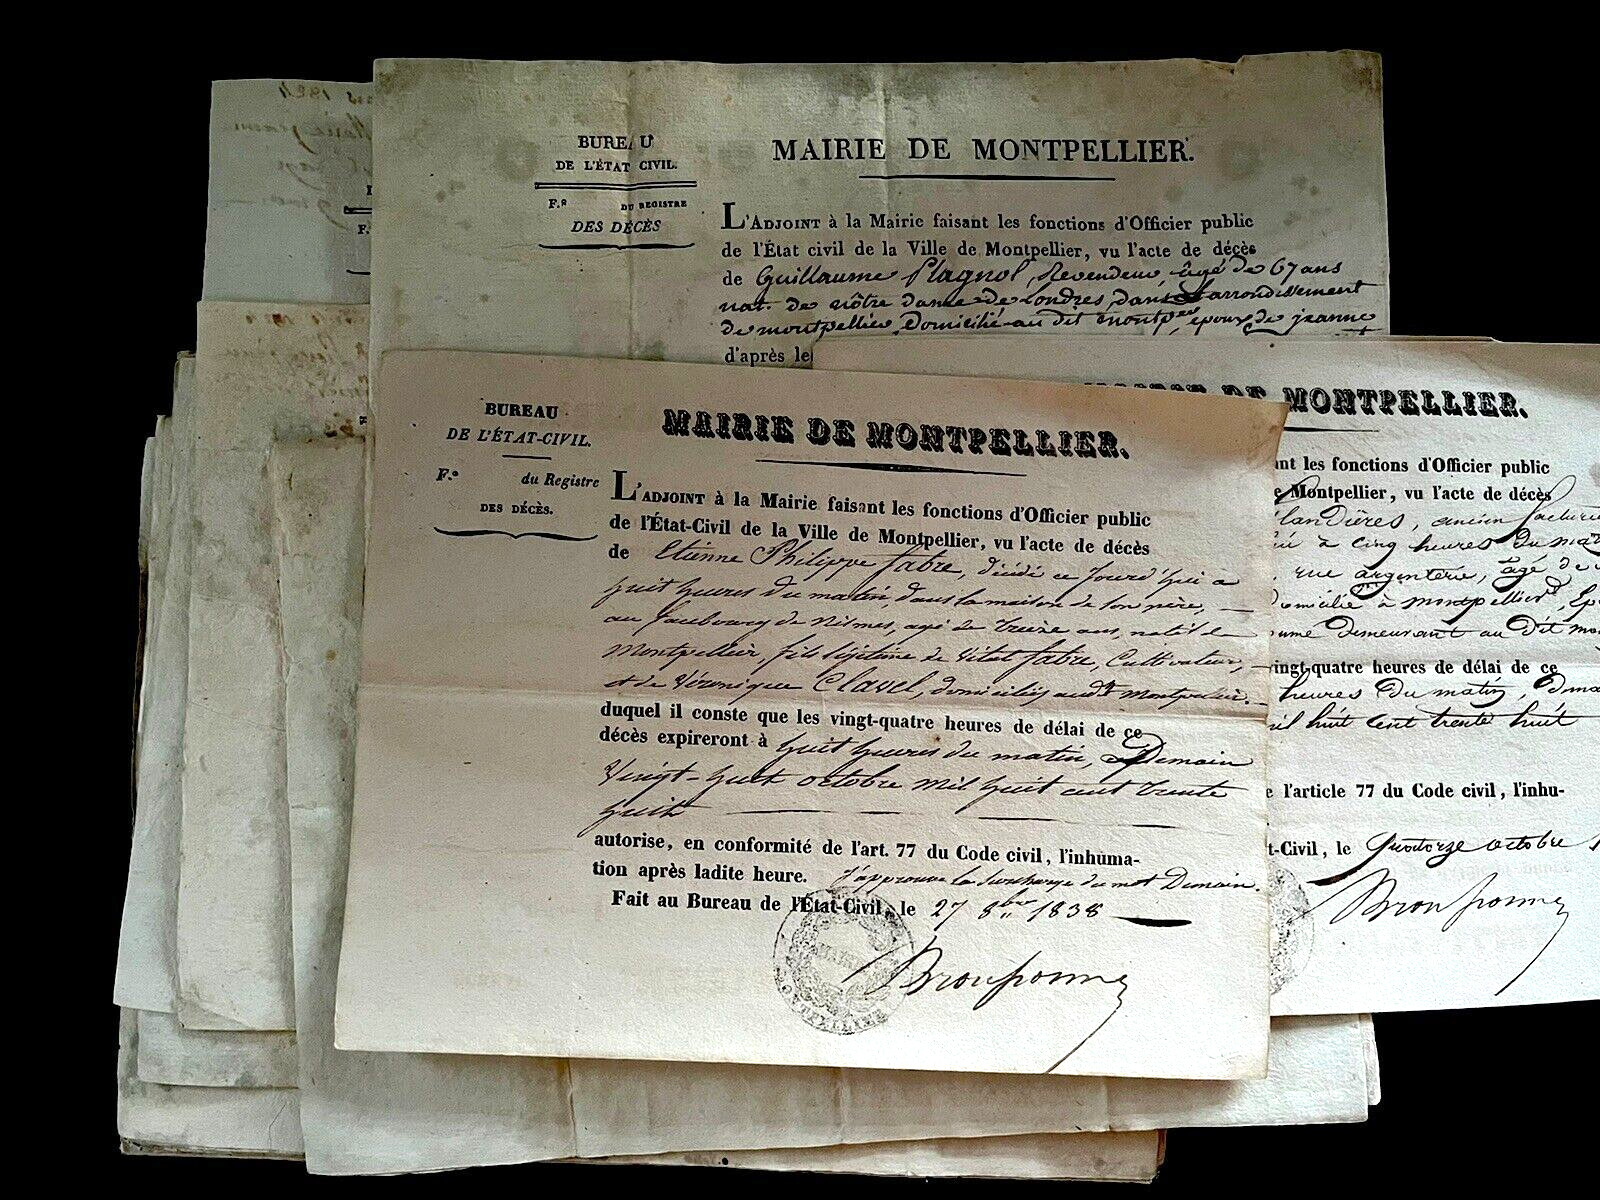 BUREAU
DE L'ÉTAT CIVIL.
F.º DU REGISTRE
DES DÉCÈS
MAIRIE DE MONTPELLIER.
L'ADJOINT à la Mairie faisant les fonctions d'Officier public
de l'État civil de la Ville de Montpellier, vu l'acte de décès
de Guillaume Plagnol, Revendeur âgé de 67 ans
nat. de nôtre dame de Londres dans l'arrondissement
de montpellier, Domicilié au dit montp.er, époux de jeanne
d'après le
BUREAU
DE L'ÉTAT-CIVIL.
F.º du Registre
DES DÉCÈS.
MAIRIE DE MONTPELLIER.
L'ADJOINT à la Mairie faisant les fonctions d'Officier public
de l'État-Civil de la Ville de Montpellier, vu l'acte de décès
de Etienne Philippe fabre, décédé ce Jourd'hui a
huit heures du matin, dans la maison de son père,
au faubourg de Nismes, agé de treize ans, natif de
Montpellier, fils légitime de Vital fabre, Cultivateur,
et de Véronique Clavel, domiciliés audt. Montpellier.
duquel il conste que les vingt-quatre heures de délai de ce
décès expireront à huit heures du matin, Demain
Vingt-huit octobre mil huit cent trente
huit
autorise, en conformité de l'art. 77 du Code civil, l'inhuma-
tion après ladite heure. J'approuve la surcharge du mot Demain.
Fait au Bureau de l'État-Civil, le 27 8bre 1838
MAIRIE
MONTPELLIER
DE MONTPELLIER.
nt les fonctions d'Officier public
e Montpellier, vu l'acte de décès
landières, ancien
à cinq heures du mat
rue argenterie, âgé de
Domicilié à montpellier, Ep
umé demeurant au dit mo
vingt-quatre heures de délai de ce
heures du matin, Dema
il huit cent trente huit
e l'article 77 du Code civil, l'inhu-
t-Civil, le quatorze octobre 1